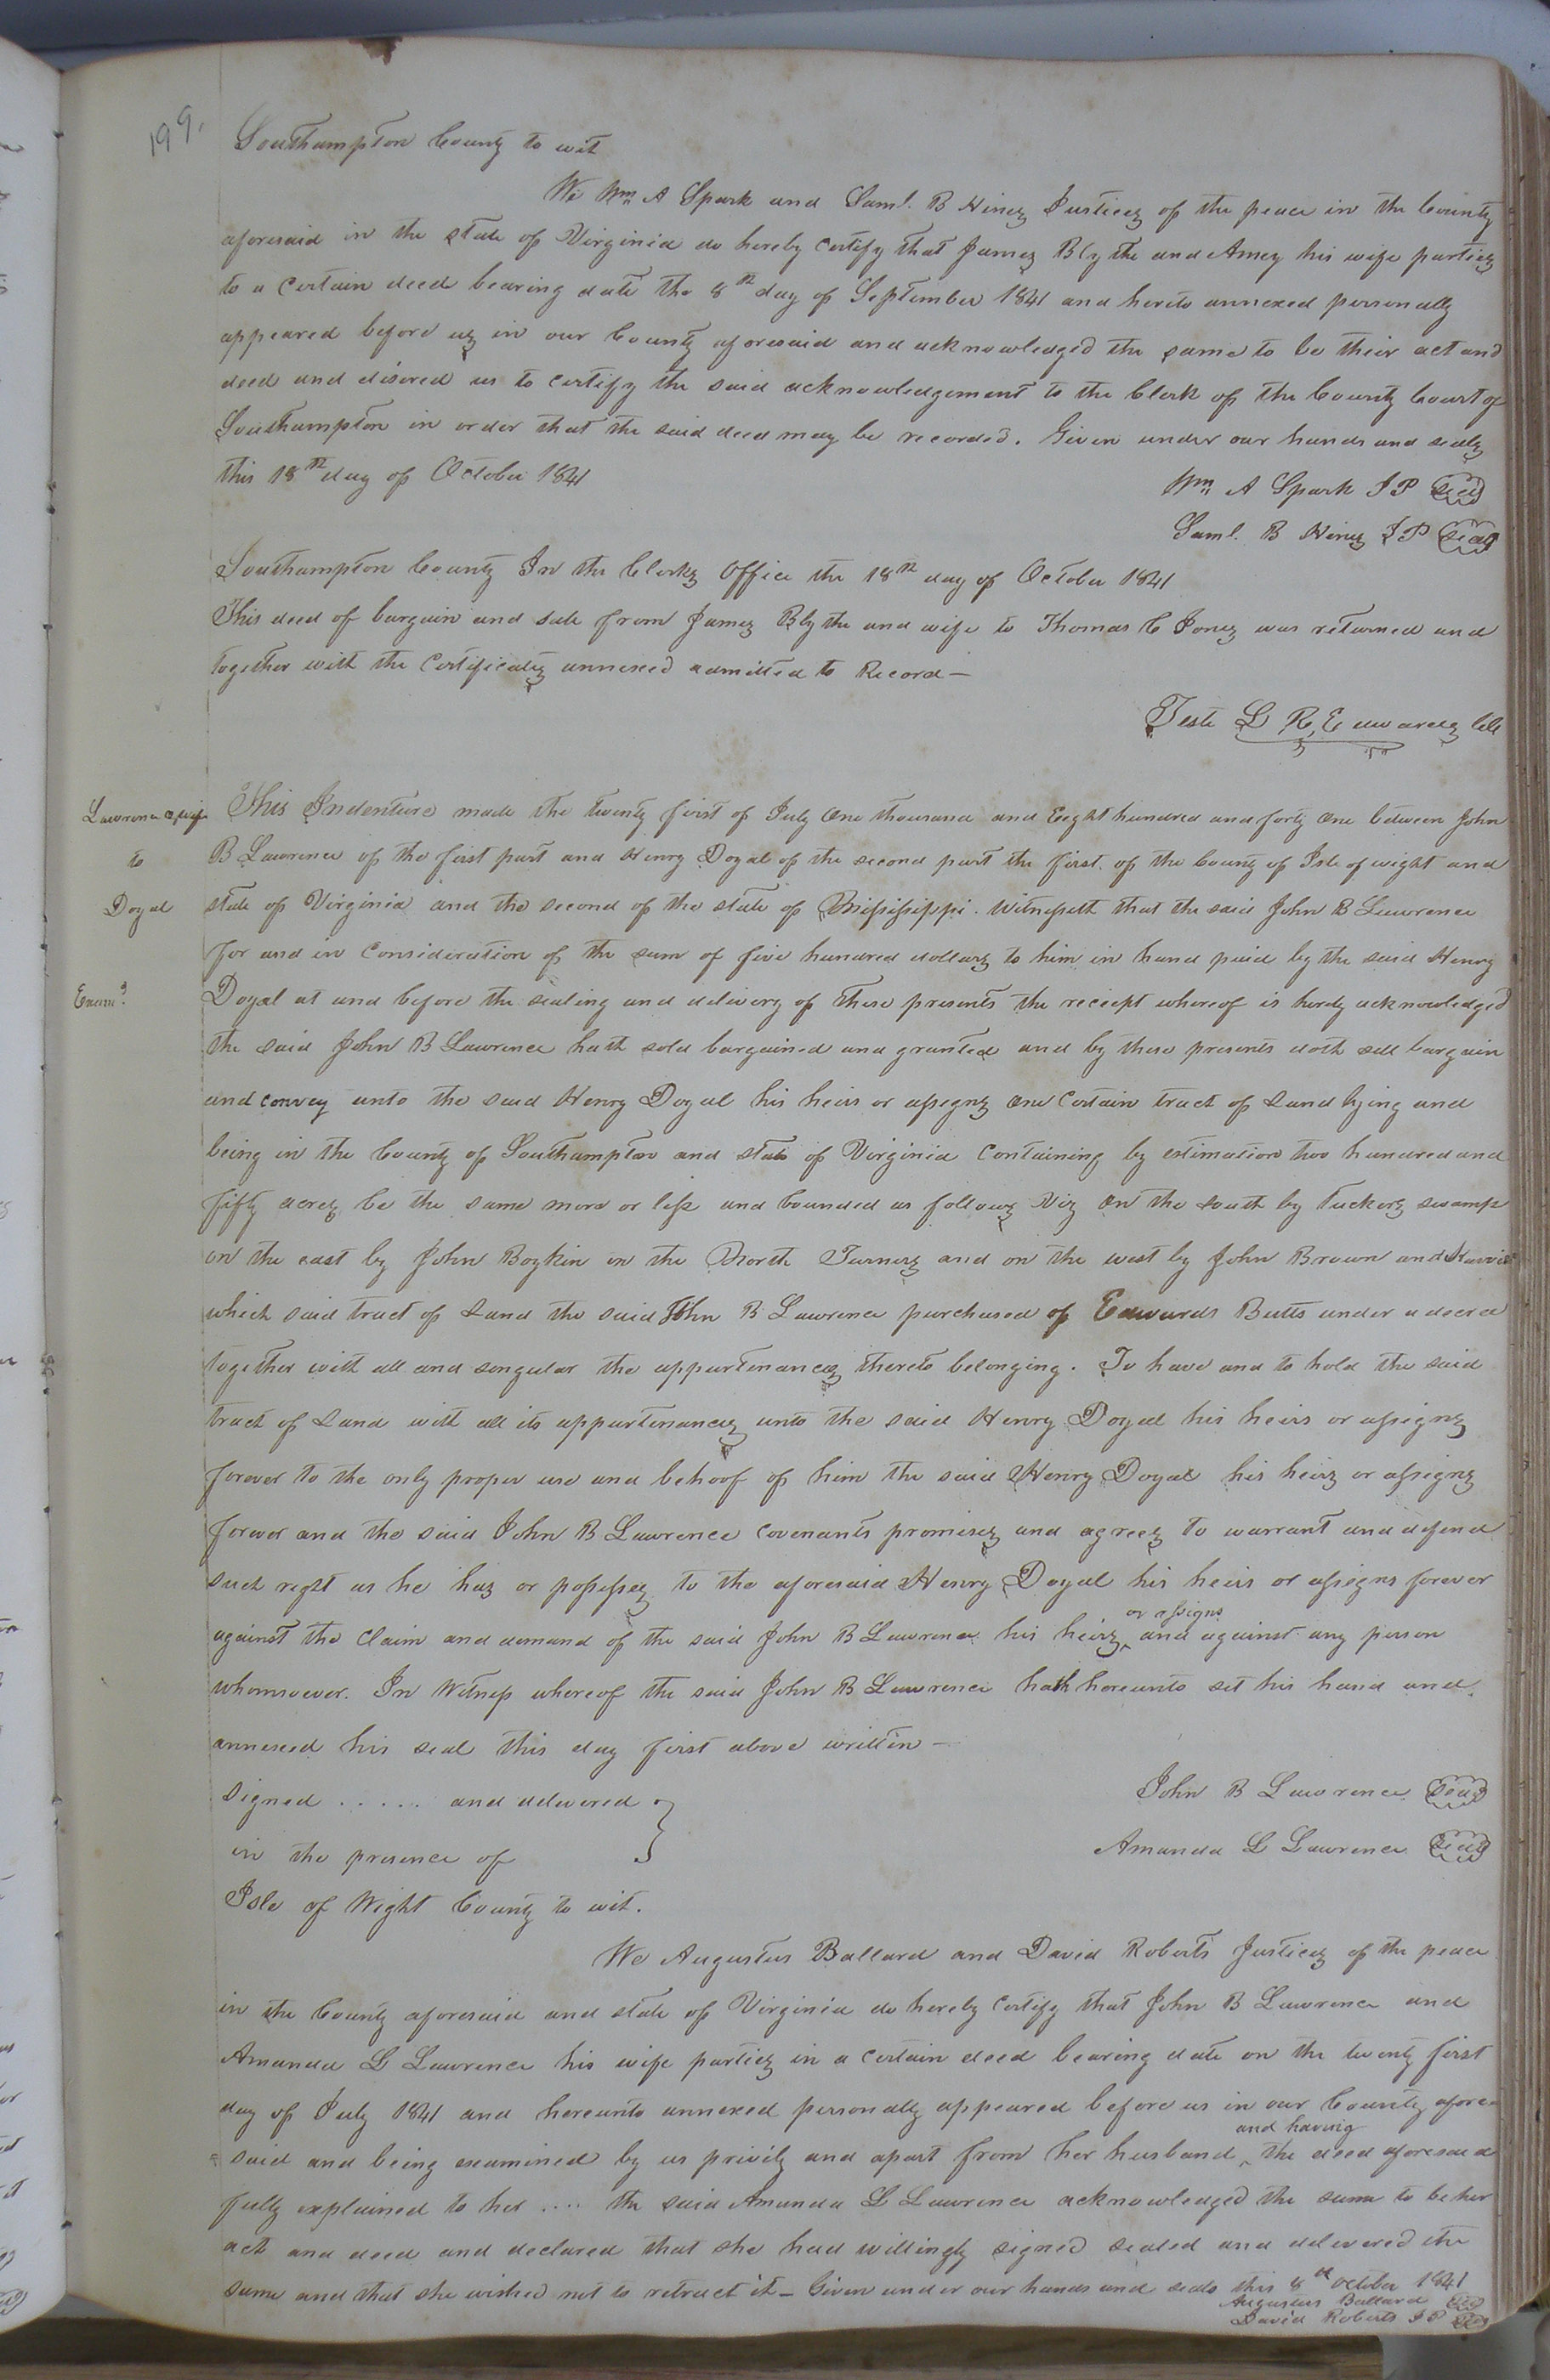 199.
Southampton County to wit
We Wm A Spark and Saml. B Hines Justices of the peace in the County
aforesaid in the state of Virginia do hereby certify that James Blythe and Amey his wife parties
to a certain deed bearing date the 8th day of September 1841 and hereto annexed personally
appeared before us in our County aforesaid and acknowledged the same to be their act and
deed and disered us to certify the said acknowledgement to the Clerk of the County Court of
Southampton in order that the said deed may be recorded. Given under our hands and seals
this 18th day of October 1841
Wm A Spark JP Seal
Saml. B Hines JP Seal
Southampton County In the Clerks Office the 18th day of October 1841
This deed of bargain and sale from James Blythe and wife to Thomas C Jones was returned and
together with the Certificates annexed admitted to Record—
Teste L R, Edwards Clk
Lawrence & wife
to
Doyal
Examd.
This Indenture made the twenty first of July One thousand and Eeight hundred and forty one between John
B Lawrence of the first part and Henry Doyal of the second part the first of the County of Isle of wight and
state of Virginia and the second of the state of Mississippi. Witnesseth that the said John B Lawrence
for and in Consideration of the sum of five hundred dollars to him in hand paid by the said Henry
Doyal at and before the sealing and delivery of these presents the reciept whereof is herby acknowledged
the said John B Lawrence hath sold bargained and granted and by these presents doth sell bargain
and convey unto the said Henry Doyal his heirs or assigns one Certain tract of Land lying and
being in the County of Southampton and state of Virginia Containing by estimation two hundred and
fifty acres be the same more or less and bounded as follows Viz On the south by Tuckers swamp
on the east by John Boykin on the North Turners and on the west by John Brown and Harris
which said tract of Land the said John B Lawrence purchased of Edwards Butts under a decree
together with all and singular the appurtenances thereto belonging. To have and to hold the said
tract of Land with all its appurtenances unto the said Henry Doyal his heirs or assigns
forever to the only proper use and behoof of him the said Henry Doyal his heirs or assigns
forever and the said John B Lawrence covenants promises and agrees to warrant and defend
such right as he has or possesses to the aforesaid Henry Doyal his heirs or assigns forever
against the Claim and demand of the said John B Lawrence his heirs ^ or assigns and against any person
whomsoever. In Witness whereof the said John B Lawrence hath hereunto set his hand and
annexed his seal this day first above written—
Signed ..... and delivered }
in the presence of
John B Lawrence Seal
Amanda L Lawrence Seal
Isle of Wight County to wit.
We Augustus Ballard and David Roberts Justices of the peace
in the County aforesaid and state of Virginia do hereby certify that John B Lawrence and
Amanda L Lawrence his wife parties in a certain deed bearing date on the twenty first
day of July 1841 and hereunto annexed personally appeared before us in our County afore
= said and being examined by us privily and apart from her husband ^ and having the deed aforesaid
fully explained to her .... the said Amanda L Lawrence acknowledged the same to be her
act and deed and declared that she had willingly signed sealed and delivered the
same and that she wished not to retract it— Given under our hands and seals this 8th October 1841
Augustus Ballard Seal
David Roberts JP Seal